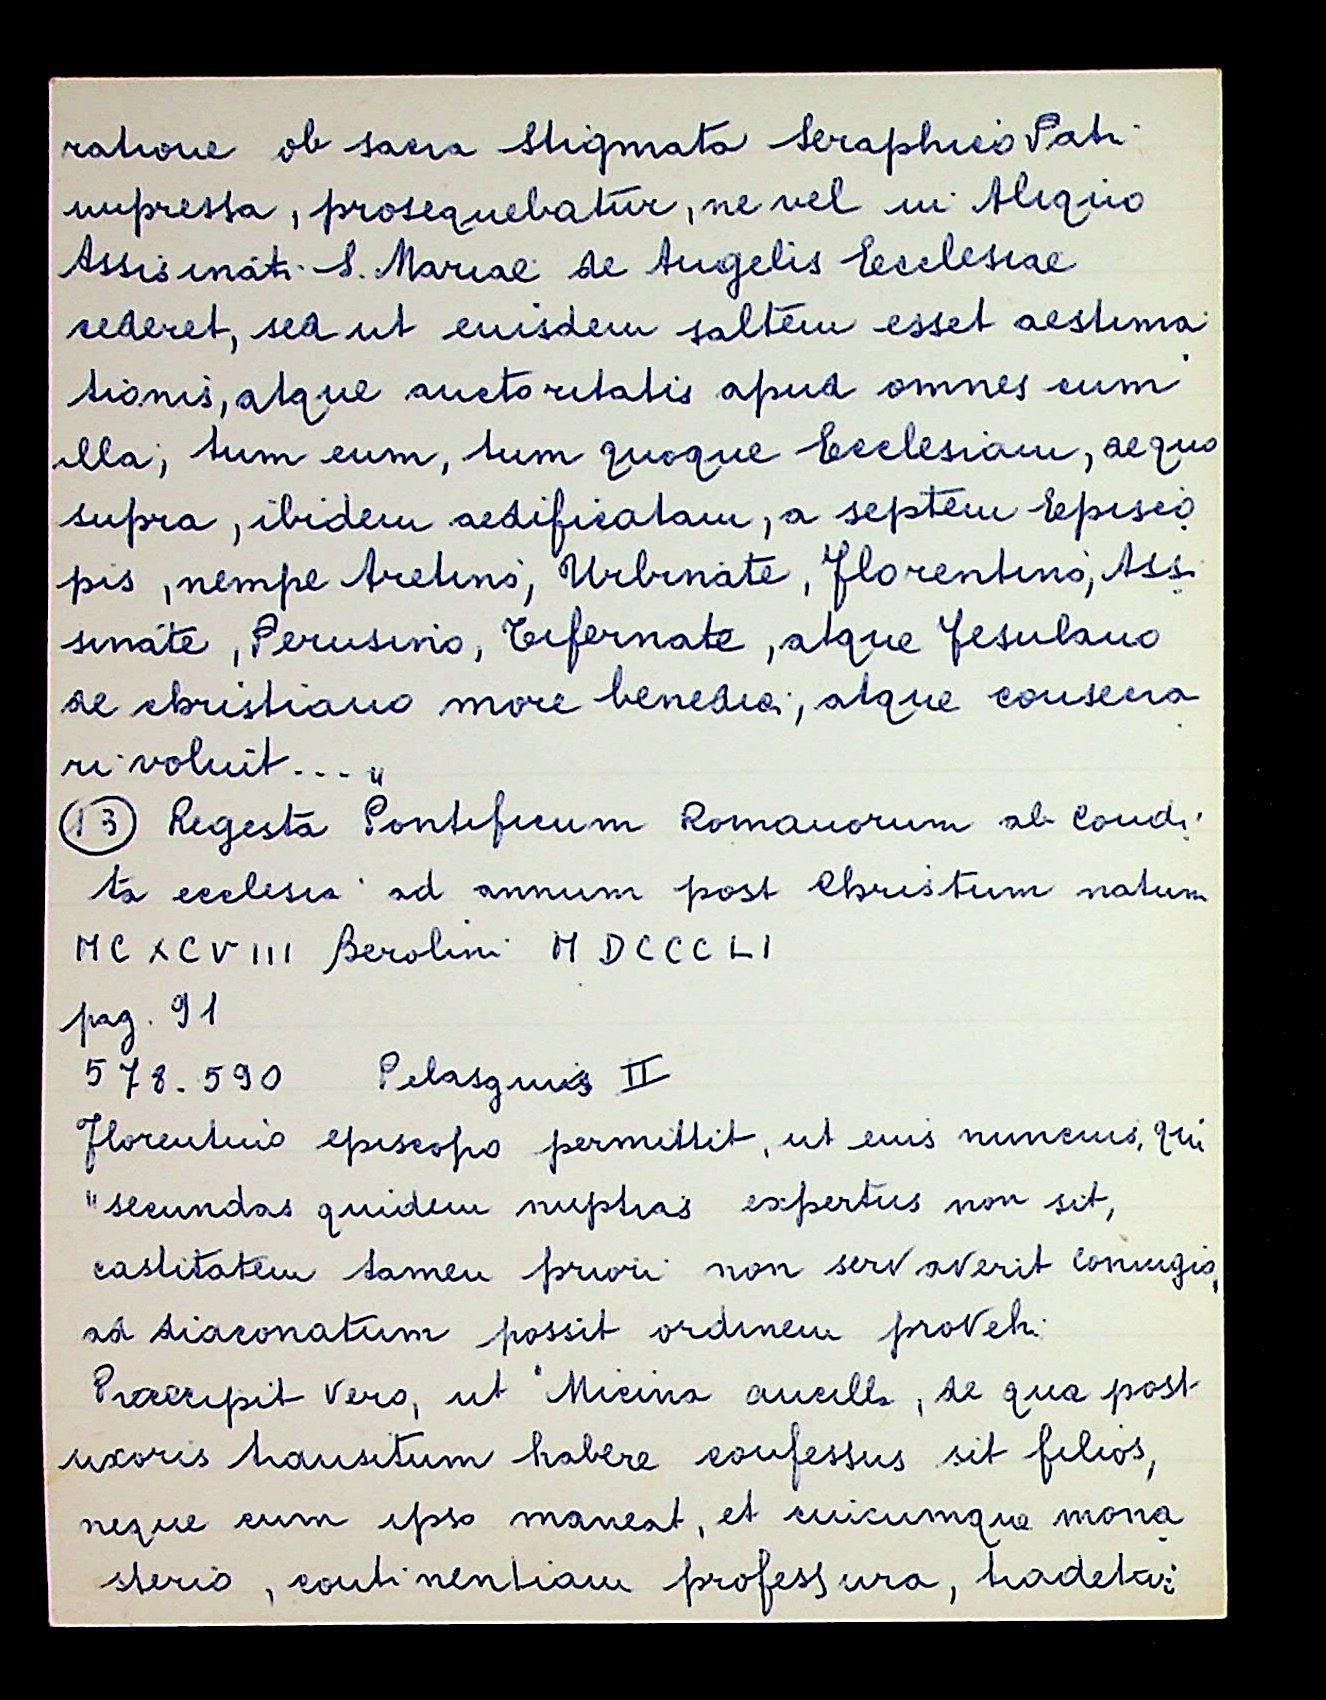 ratione ob sacra Stigmata Seraphico Patri
impressa, prosequebatur, ne vel in Aliquo
Assisinati S. Mariae de Angelis Ecclesiae
cederet, sed ut euisdem saltem esset aestima
tionis, atque auctoritatis apud omnes cum
illa; tum eum, tum quoque Ecclesiam, de quo
supra, ibidem aedificatam, a septem Episco
pis, nempe Aretino, Urbinate, Florentino, Assi
sinate, Perusino, Tifernate, atque Fesulano
de christiano more benedici, atque consecra
ri voluit... "
(13) Regesta Pontificum Romanorum ab Condi
ta ecclesia ad annum post Christum natum
MCXCVIII Berolini MDCCCLI
pag. 91
578.590 Pelasguis II
Florentino episcopo permittit, ut euis nuncius, qui
"secundas quidem nuptias expertus non sit,
castitatem tamen priori non servaverit coniugio,
ad diaconatum possit ordinem provehi
Praecipit vero, ut "Micina ancilla, de qua post
uxoris transitum habere confessus sit filios,
neque cum ipso maneat, et cuicumque mona
sterio, continentiam professura, tradetur;